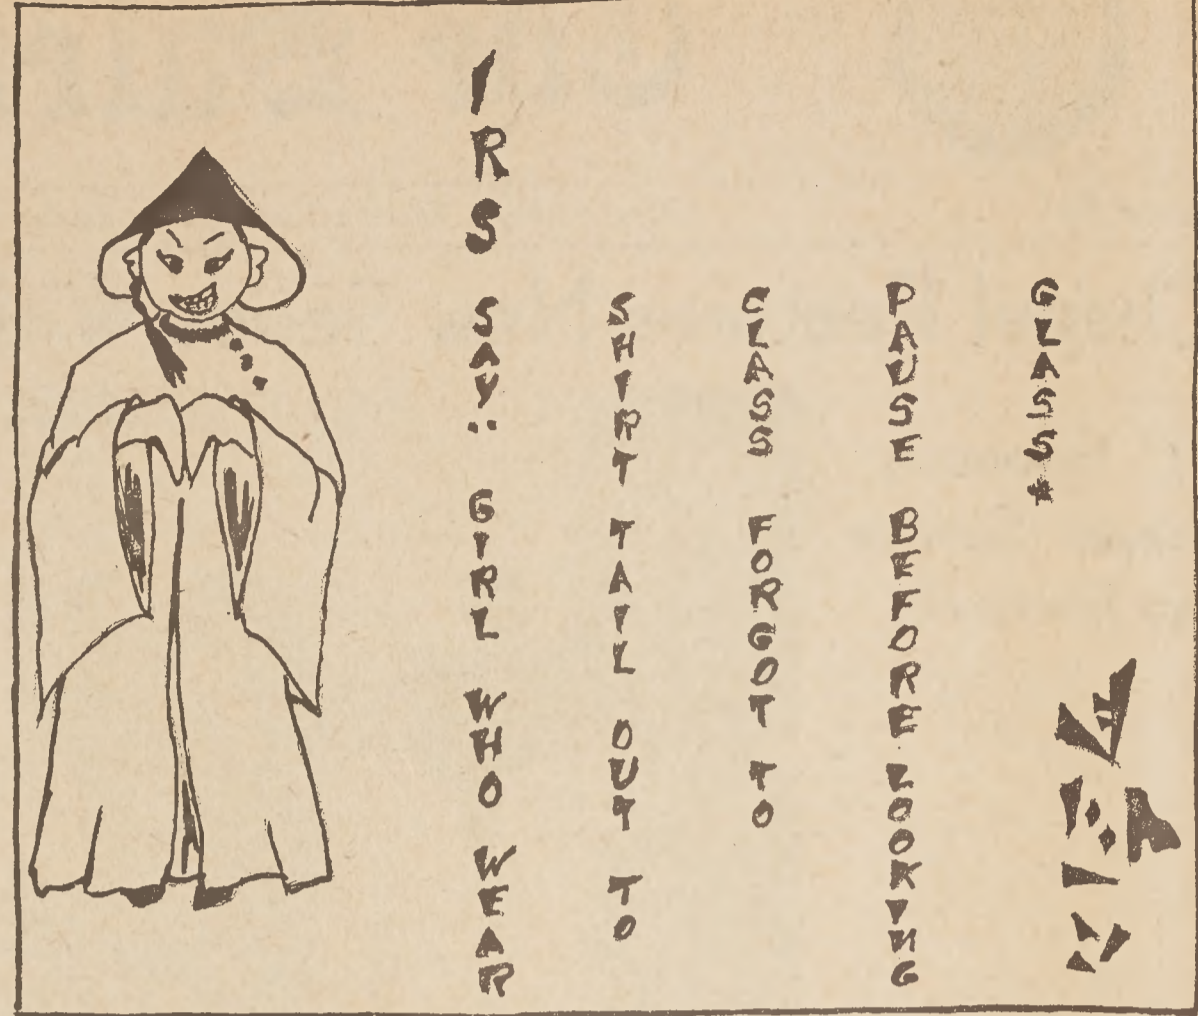 IRS SAY: GIRL WHO WEAR
SHIRT TAIL OUT TO
CLASS FORGOT TO
PAUSE BEFORE LOOKING
GLASS*